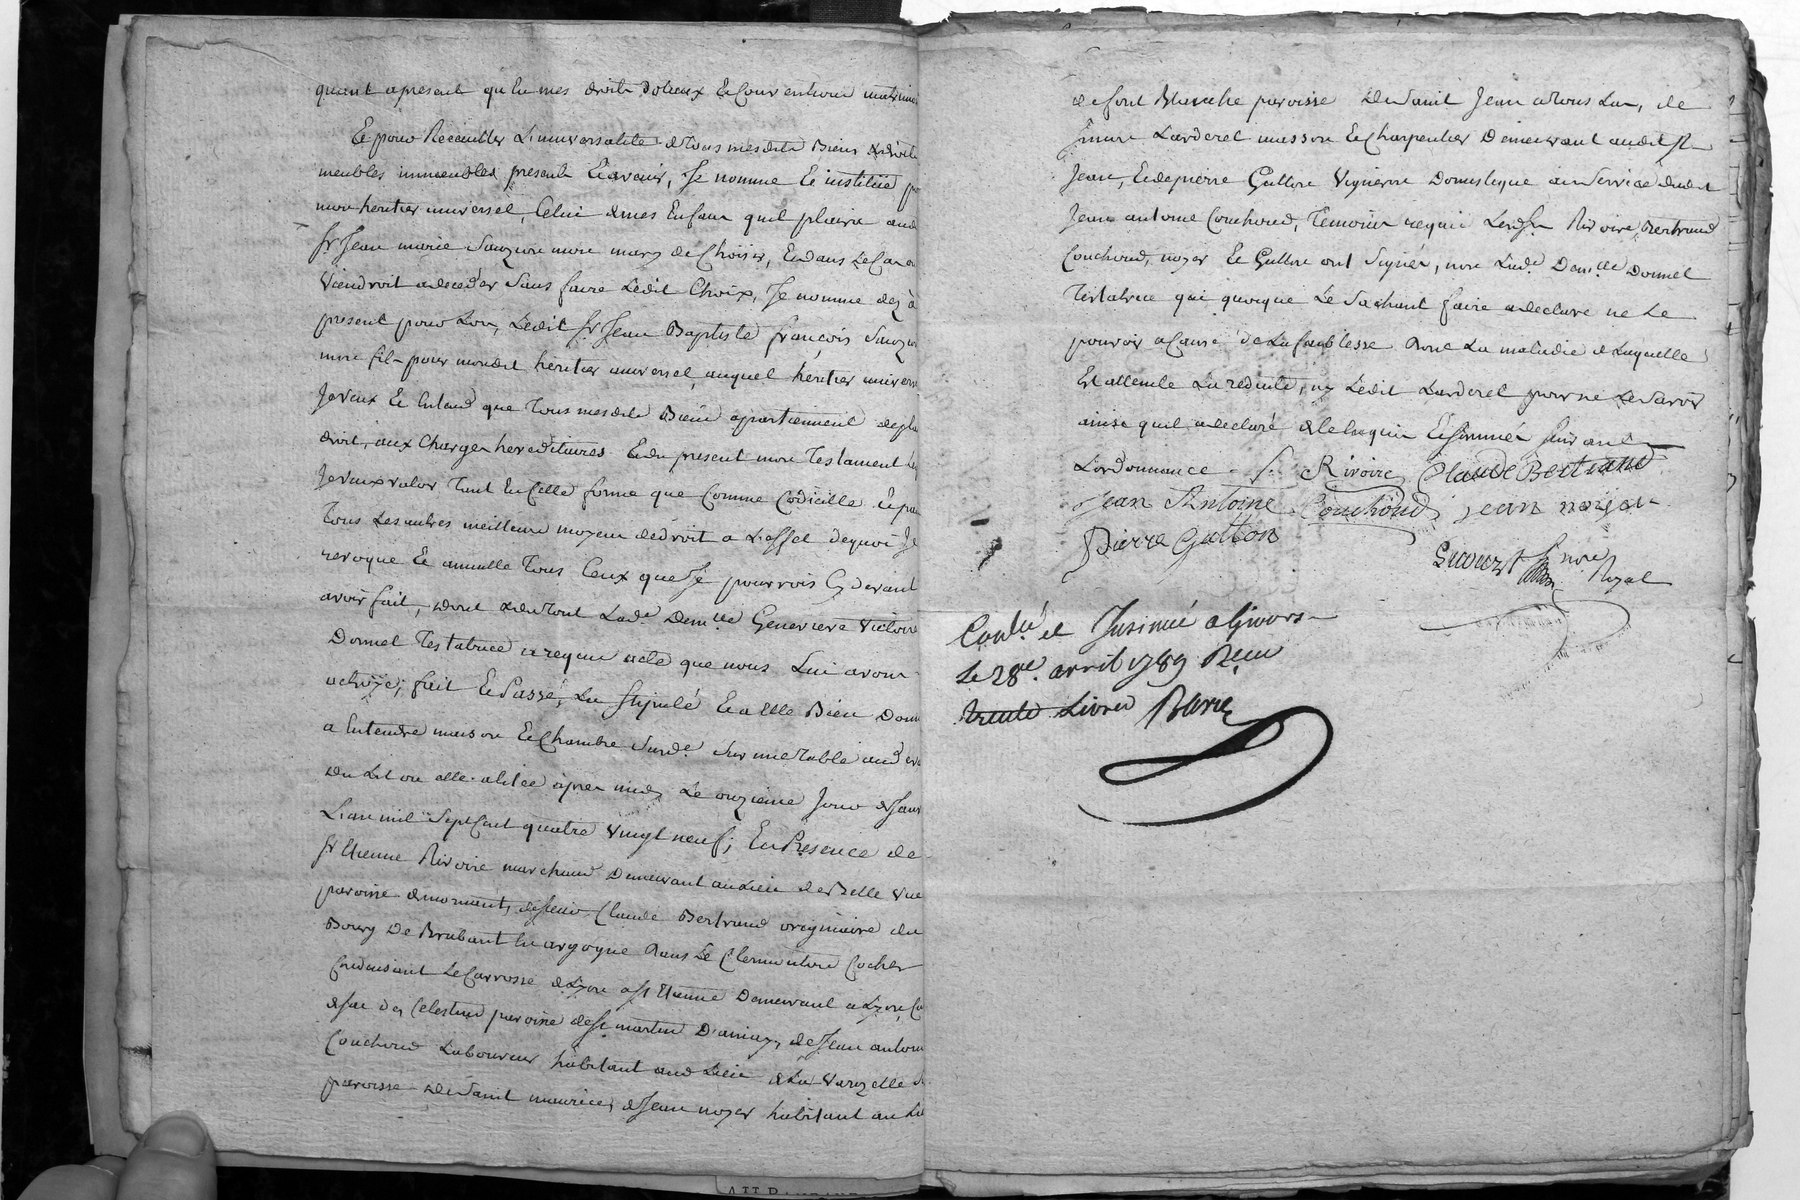 quant apresent qu'a mes droits dotaux et Conventions matrimo
Et pour Recueillir L'universalité de tous mes dits Biens et droits
meubles immeubles presents et avenir, Je nomme et institue p
mon heritier universel, Celui de mes Enfans quil plaira aud
Sr Jean marie mon mary de Choisir, Et dans Le Cas ou
viendroit a deceder Sans faire Ledit Choix, Je nomme dez à
present pour Lors, Ledit Sr Jean Baptiste françois
mon fils pour mondit heritier universel, auquel heritier univers
Je veux et Entend que tous mes dits Biens appartiennent de pl
droit, aux Charges hereditaires Et du present mon Testament
Je veux valoir tant En Cette forme que Comme Codicille Et pa
tous Les autres meilleurs moyens de droit a L'effet de quoi Je
revoque Et annulle tous Ceux que Je pourrois Cy devant
avoir fait, dont du tout Lade Demlle Genevieve Victoire
Donnet Testatrice a requis acte que nous Lui avons
octroyé; fait Et Passé, Lu Stipulé Et a Elle Bien Donn
a Entendre maison Et Chambre Susde Sur une table aud
du Lit ou elle alitée après midy Le onzieme Jour de Janv
L'an mil Sept Cent quatre vingt neuf; En Presence de
Sr Etienne Rivoire marchand Demeurant au Lieu de Belle vue
paroisse de mornant, de Sieur Claude Bertrand originaire du
Bourg De Brabant En argogne dans Le Clermontois Cocher
Conduisant Le Carrosse de Lyon a St Etienne Demeurant a Lyon
des Celestins paroisse de St martin D'ainay, de Jean antoin
Couchoud Laboureur habitant aud Lieu de La varizelle
paroisse de Saint maurice, de Jean noyer habitant au Li
de font Blanche paroisse de Saint Jean a tous Las, de
Larderet masson Et Charpentier Demeurant audit St
Jean, Et de pierre Gutton vigneron Domestique au Service dudit
Jean antoine Couchoud, Temoins requis Lesdts Rivoire, Bertrand
Couchoud, noyer Et Gutton ont Signés, non Lade Demlle Donnet
Testatrice qui quoique Le Sachant faire a declaré ne Le
pouvoir a Cause de La faiblesse dont La maladie de Laquelle
Est atteinte L'a reduite, ny Ledit Larderet pour ne Le Savoir
ainsi quil a declaré de Ce Enquis Et Sommés Suivant
L'ordonnance Rivoire Claude Bertrand
Jean Antoine Couchoud jean noyer
Pierre Gutton
nore
Royal
Conlé et Insinué a Givors
le 28e. avril 1789 Reçu
trente Livres